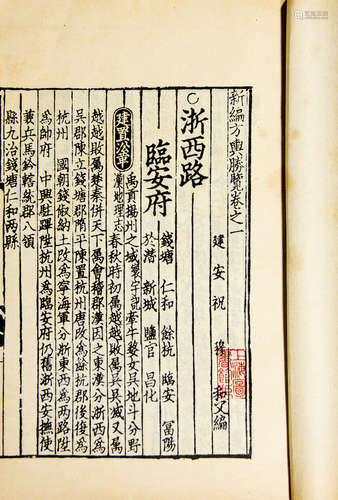 新編方輿勝覽卷之一
建安祝 穆 和父 編
浙西路
臨安府
錢塘 仁和 餘杭 臨安 富陽
於潛 新城 鹽官 昌化
建置沿革
禹貢揚州之域 牽牛婺女吳地斗分野
漢地理志 春秋時初屬越越敗屬吳吳滅又屬
越越敗屬楚秦併天下屬會稽郡漢因之東漢分屬
吳郡陳立錢塘郡隋平陳置杭州唐改爲餘杭郡後復爲
杭州 國朝錢俶納土改爲寧海軍分浙東西爲兩路陞
爲帥府 中興駐蹕杭州爲臨安府仍舊浙西安撫使
兼兵馬鈐轄統郡八領
縣九治錢塘仁和兩縣